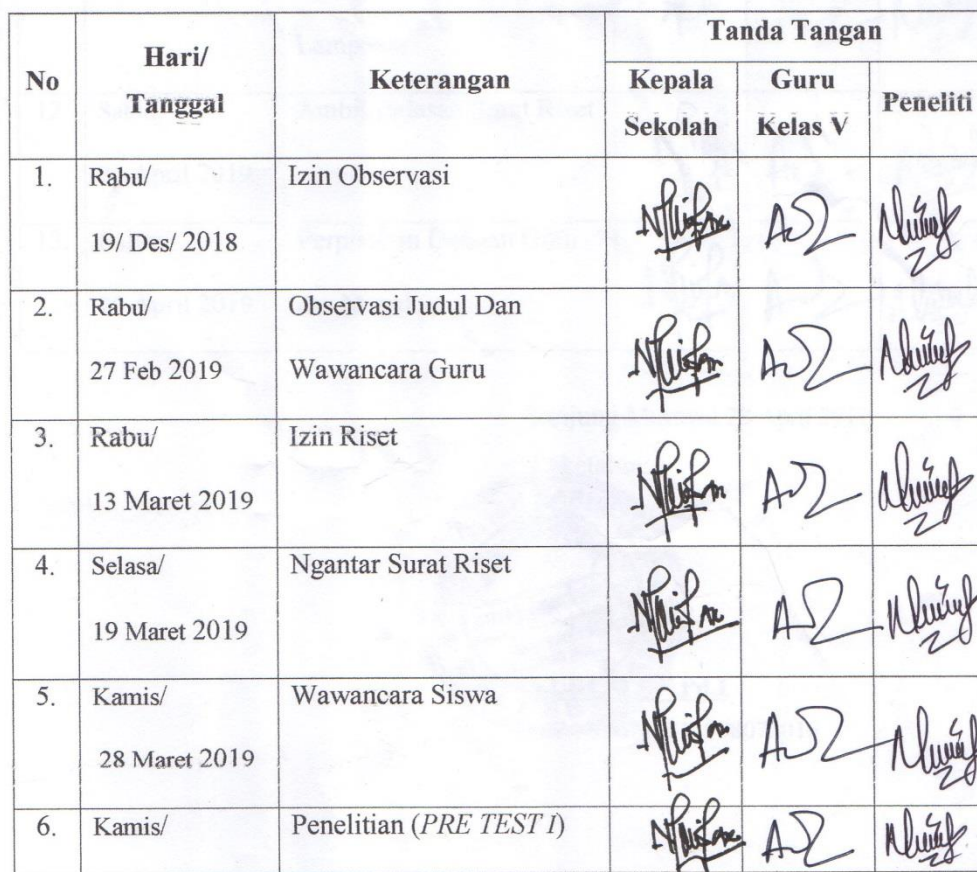 No
Hari/
Tanggal
Keterangan
Tanda Tangan
Kepala
Sekolah
Guru
Kelas V
Peneliti
1.
Rabu/
19/ Des/ 2018
Izin Observasi
2.
Rabu/
27 Feb 2019
Observasi Judul Dan
Wawancara Guru
3.
Rabu/
13 Maret 2019
Izin Riset
4.
Selasa/
19 Maret 2019
Ngantar Surat Riset
5.
Kamis/
28 Maret 2019
Wawancara Siswa
6.
Kamis/
Penelitian (PRE TEST I)